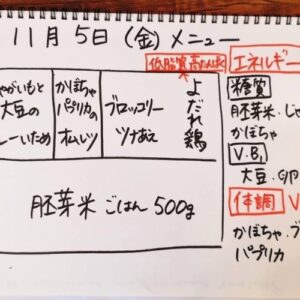 11月5日(金)メニュー
低脂質高たんぱく
よだれ鶏
ブロッコリー
ツナあえ
かぼちゃ
パプリカの
オムレツ
ゃがいもと
大豆の
レーいため
胚芽米ごはん500g
エネルギー
糖質
胚芽米.じゃ
かぼちゃ
V.B₁
大豆.
体調 V
かぼちゃ.ブ
パプリカ